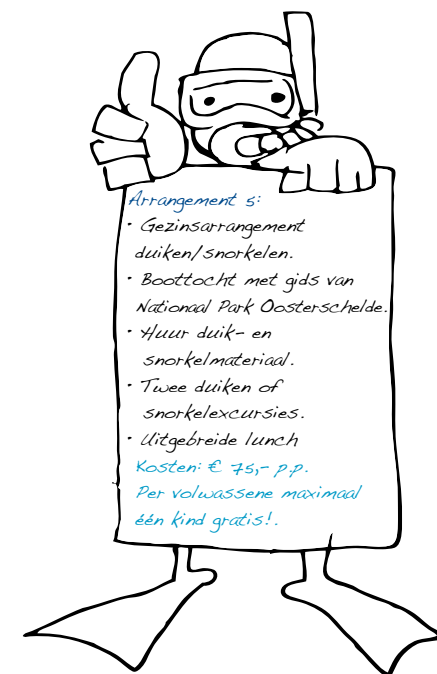 Arrangement 5:
· Gezinsarrangement
duiken/snorkelen.
· Boottocht met gids van
Nationaal Park Oosterschelde.
· Huur duik- en
snorkelmateriaal.
· Twee duiken of
snorkelexcursies.
· Uitgebreide lunch
Kosten: € 75,- p.p.
Per volwassene maximaal
één kind gratis!.